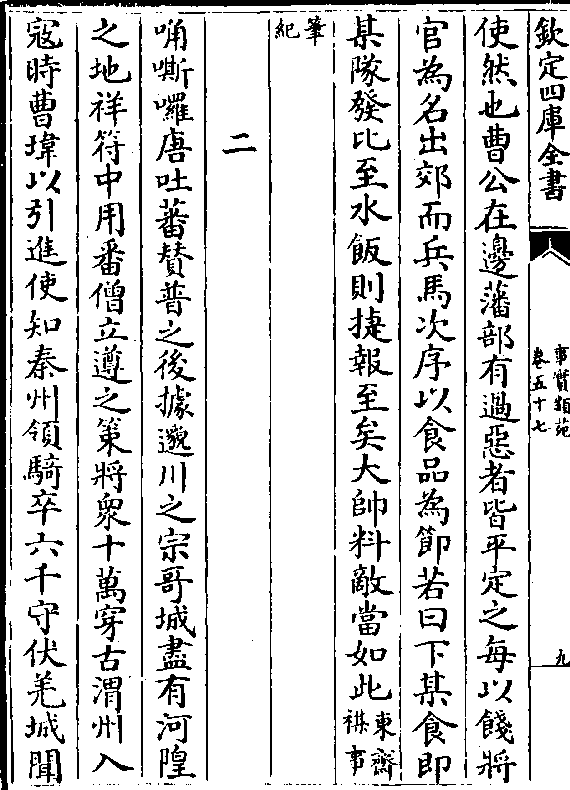 欽定四庫全書
事實類苑
卷五十七
九
使然也曹公在邊藩部有過惡者皆平定之每以餞將
官為名出郊而兵馬次序以食品為節若曰下某食即
某隊發比至水飯則捷報至矣大帥料敵當如此東齋
祺事
筆
紀
二
唃嘶囉唐吐蕃賛普之後據邈川之宗哥城盡有河隍
之地祥符中用番僧立遵之策將衆十萬穿古渭州入
寇時曹瑋以引進使知秦州領騎卒六千守伏羌城聞